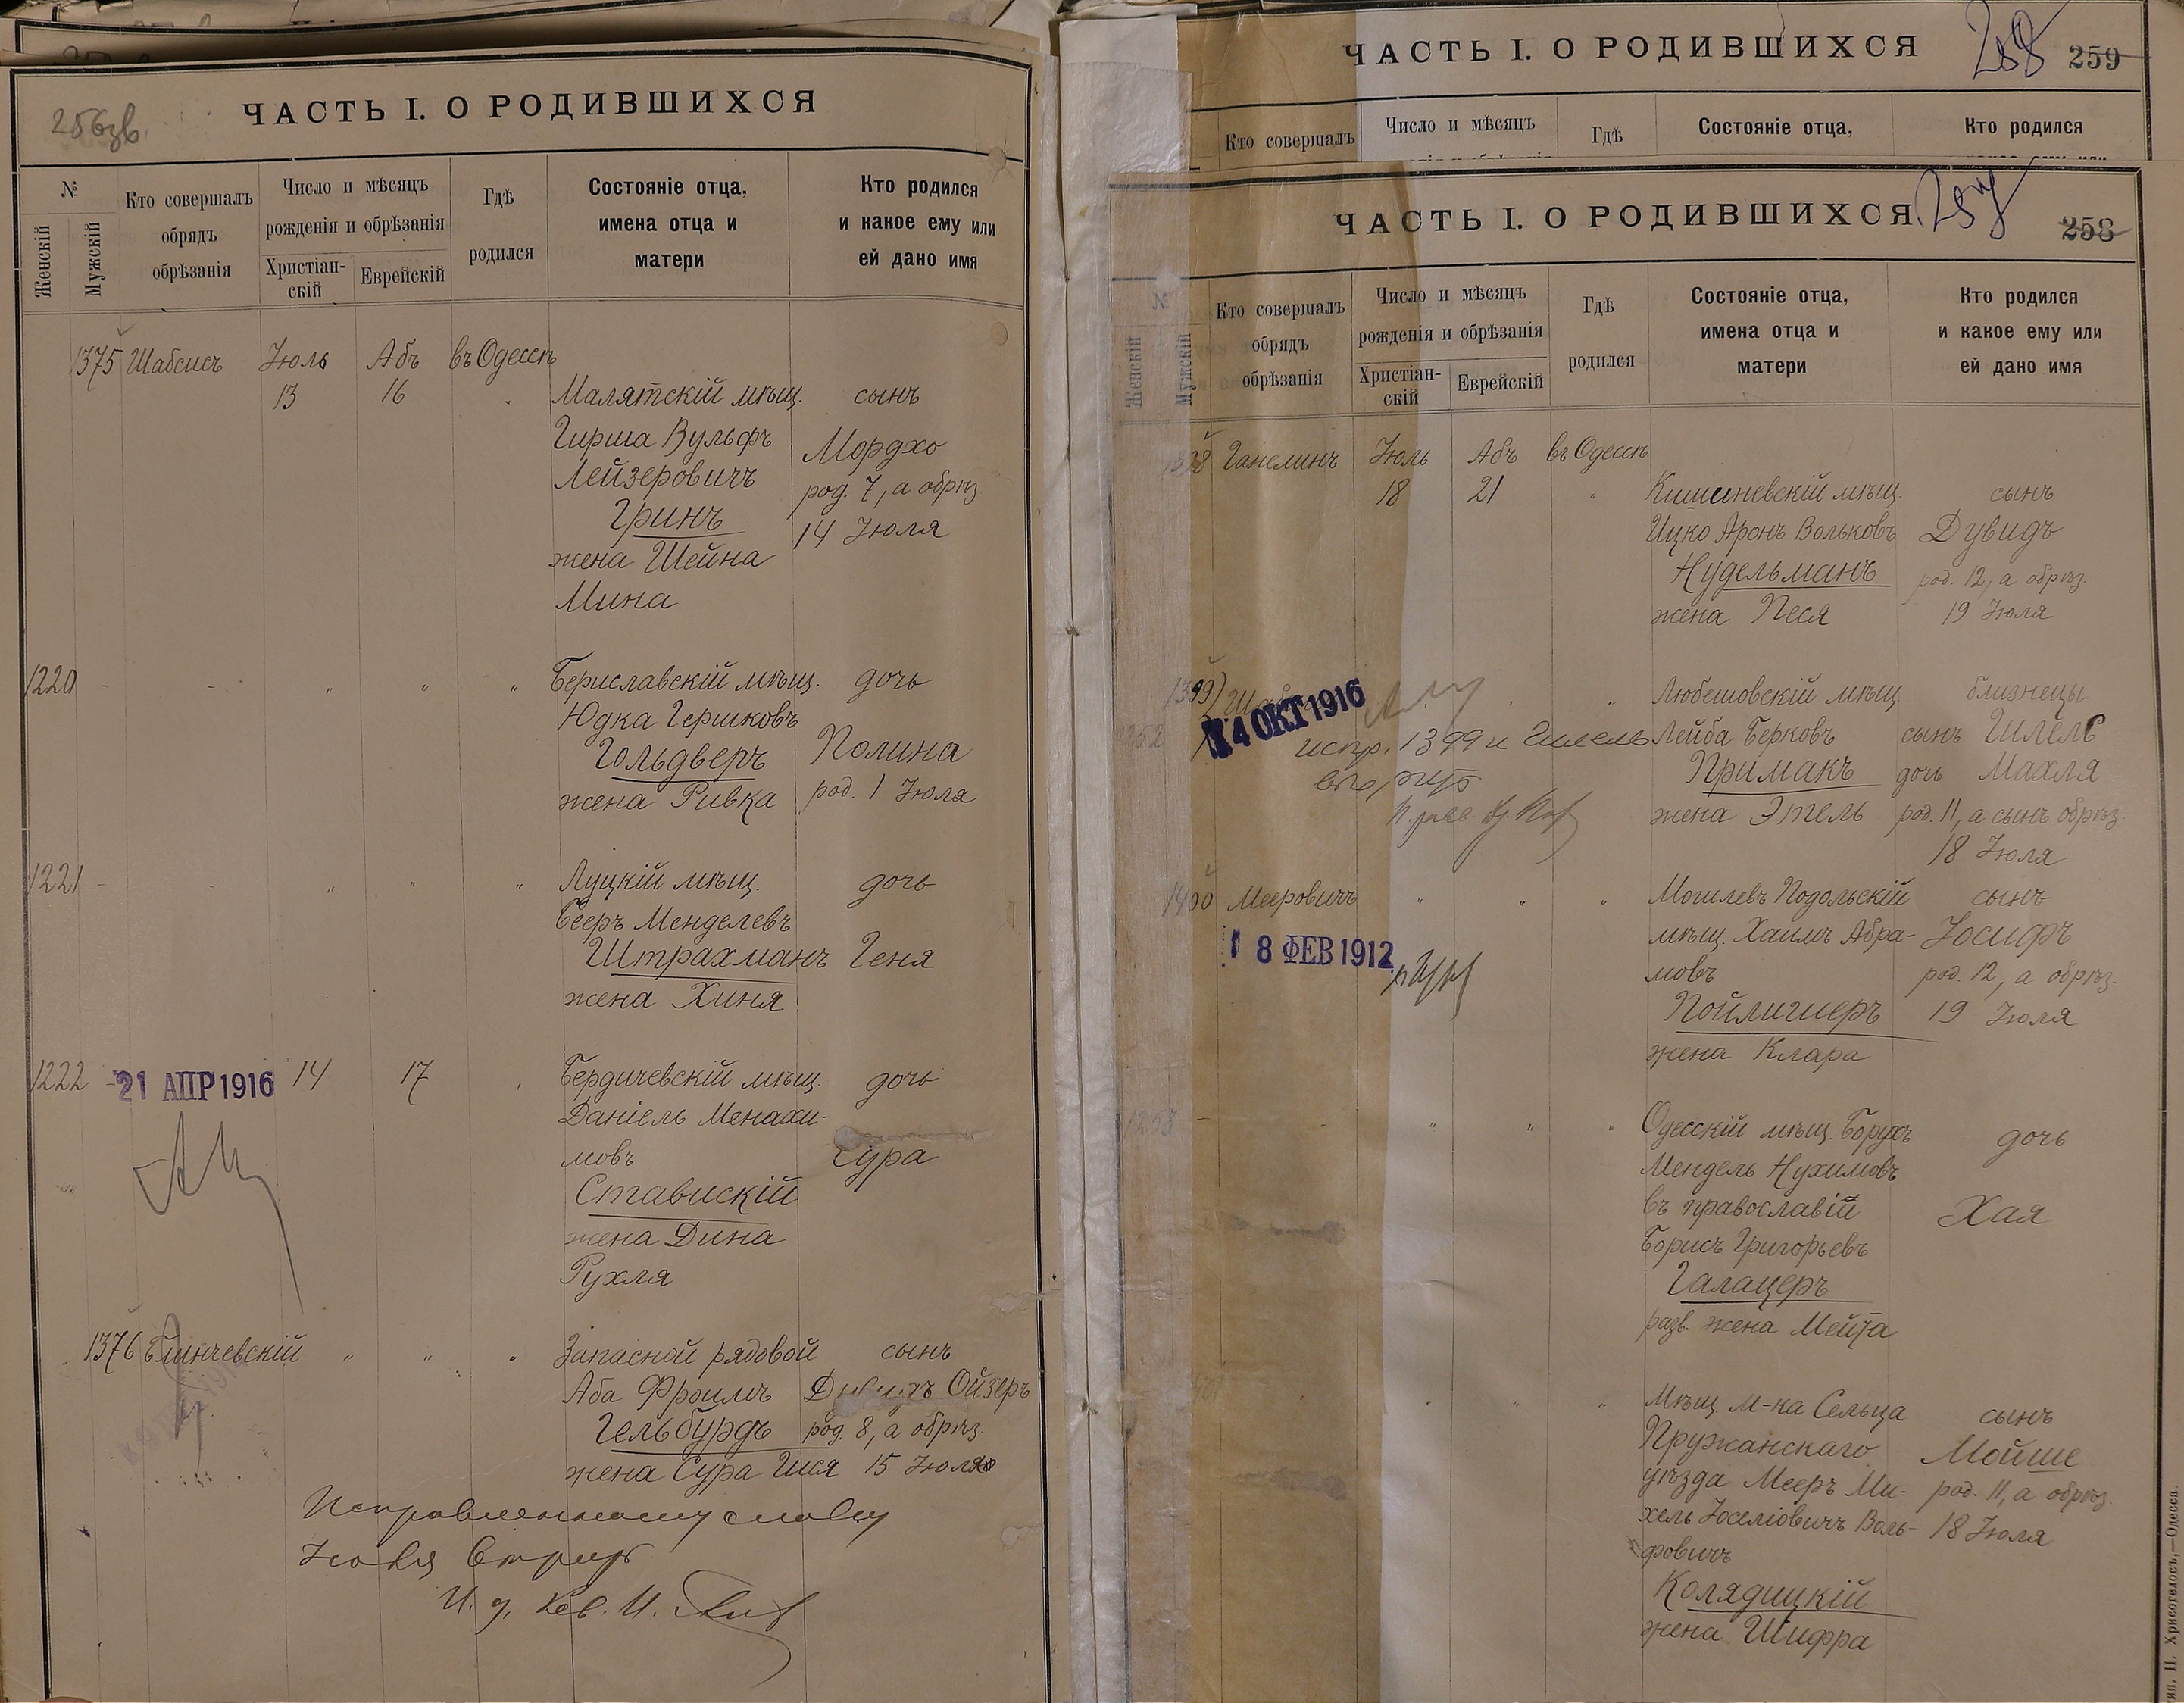 256 зв.
ЧАСТЬ I. О РОДИВШИХСЯ
№
Женскій
Мужскій
Кто совершалъ
обрядъ
обрѣзанія
Число и мѣсяцъ
рожденія и обрѣзанія
Христіан-
скій
Еврейскій
Гдѣ
родился
Состояніе отца,
имена отца и
матери
Кто родился
и какое ему или
ей дано имя
1375 Шабсисъ Іюль Абъ въ Одессѣ
13 16 " Малятскій мѣщ. сынъ
Гирша Вульфъ Мордхо
Лейзеровичъ род. 7, а обрѣз.
Гринъ 14 Іюля
жена Шейна
Мина
1220 - - " " " Бериславскій мѣщ. дочь
Юдка Гершковъ
Гольдверъ Полина
жена Ривка род. 1 Іюля
1221 - - " " " Луцкій мѣщ. дочь
Бееръ Менделевъ
Штрахманъ Геня
жена Хиня
1222 - 21 АПР 1916 14 17 " Бердичевскій мѣщ. дочь
Даніель Менахи-
мовъ Сура
Ставискій
жена Дина
Рухля
1376 Блинчевскій " " " Запасной рядовой сынъ
Аба Фроимъ Дувидъ Ойзеръ
Гельбурдъ род. 8, а обрѣз.
жена Сура Шся 15 Іюля
Исправленному слову
Іюля
И. д.
ЧАСТЬ I. О РОДИВШИХСЯ
258
259
Кто совершалъ
Число и мѣсяцъ
Гдѣ
Состояніе отца,
Кто родился
ЧАСТЬ I. О РОДИВШИХСЯ
257
258
№
Женскій
Мужскій
Кто совершалъ
обрядъ
обрѣзанія
Число и мѣсяцъ
рожденія и обрѣзанія
Христіан-
скій
Еврейскій
Гдѣ
родился
Состояніе отца,
имена отца и
матери
Кто родился
и какое ему или
ей дано имя
Ганелинъ Іюль Абъ въ Одессѣ
18 21 " Кишиневскій мѣщ. сынъ
Ицко Аронъ Вольковъ Дувидъ
Нудельманъ род. 12, а обрѣз.
жена Песя 19 Іюля
1399) " Любешовскій мѣщ. близнецы
14 ОКТ 1916
испр. 1399 и Шлемъ Лейба Берковъ сынъ Шлемъ
Примакъ дочь Махля
жена Этель род. 11, а сынъ обрѣз.
18 Іюля
1400 Мееровичъ " " " Могилевъ Подольскій сынъ
8 ФЕВ 1912 мѣщ. Хаимъ Абра- Іосифъ
мовъ род. 12, а обрѣз.
Пойлишеръ 19 Іюля
жена Клара
1253 - - " " " Одесскій мѣщ. Борухъ дочь
Мендель Нухимовъ
въ православіи Хая
Борисъ Григорьевъ
Галацеръ
разв. жена Мейта
" " Мѣщ. м-ка Сельца сынъ
Пружанскаго Мойше
уѣзда Мееръ Ми- род. 11, а обрѣз.
хель Іоселіовичъ Воль- 18 Іюля
фовичъ
Колядицкій
жена Шифра
П. Хрисогелосъ,—Одесса.